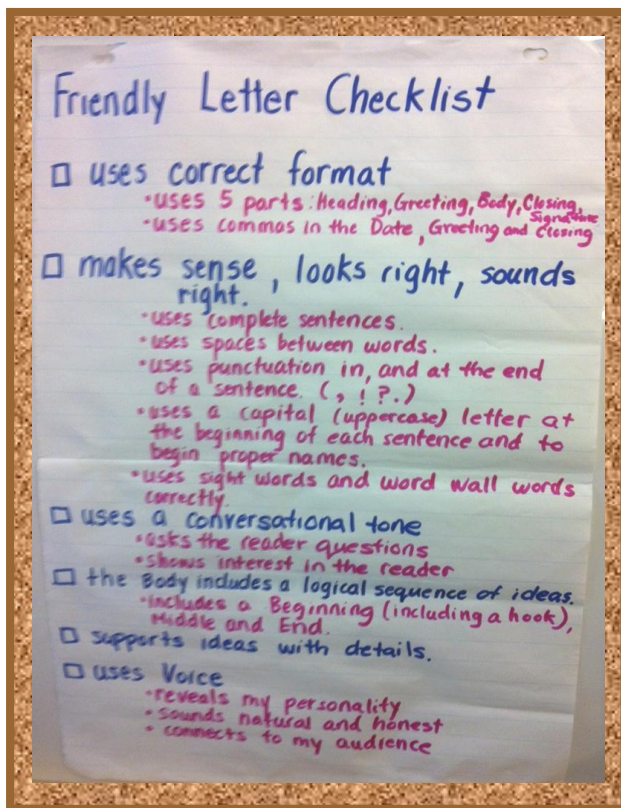 Friendly Letter Checklist
□ uses correct format
•uses 5 parts: Heading, Greeting, Body, Closing, Signature
•uses commas in the Date, Greeting and Closing
□ makes sense, looks right, sounds
right.
•uses complete sentences.
•uses spaces between words.
•uses punctuation in, and at the end
of a sentence. (, ! ? .)
•uses a capital (uppercase) letter at
the beginning of each sentence and to
begin proper names.
•uses sight words and word wall words
correctly.
□ uses a conversational tone
•asks the reader questions
•shows interest in the reader
□ the Body includes a logical sequence of ideas.
•includes a Beginning (including a hook),
Middle and End.
□ supports ideas with details.
□ uses Voice
•reveals my personality
•sounds natural and honest
•connects to my audience